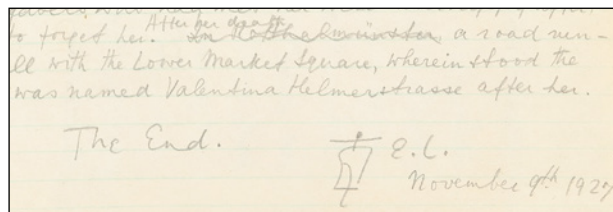 to forget her. After her death a road run-
ll with the Lower Market Square, wherein stood the
was named Valentina Helmerstrasse after her.
The End.
E.L.
November 9th 1927